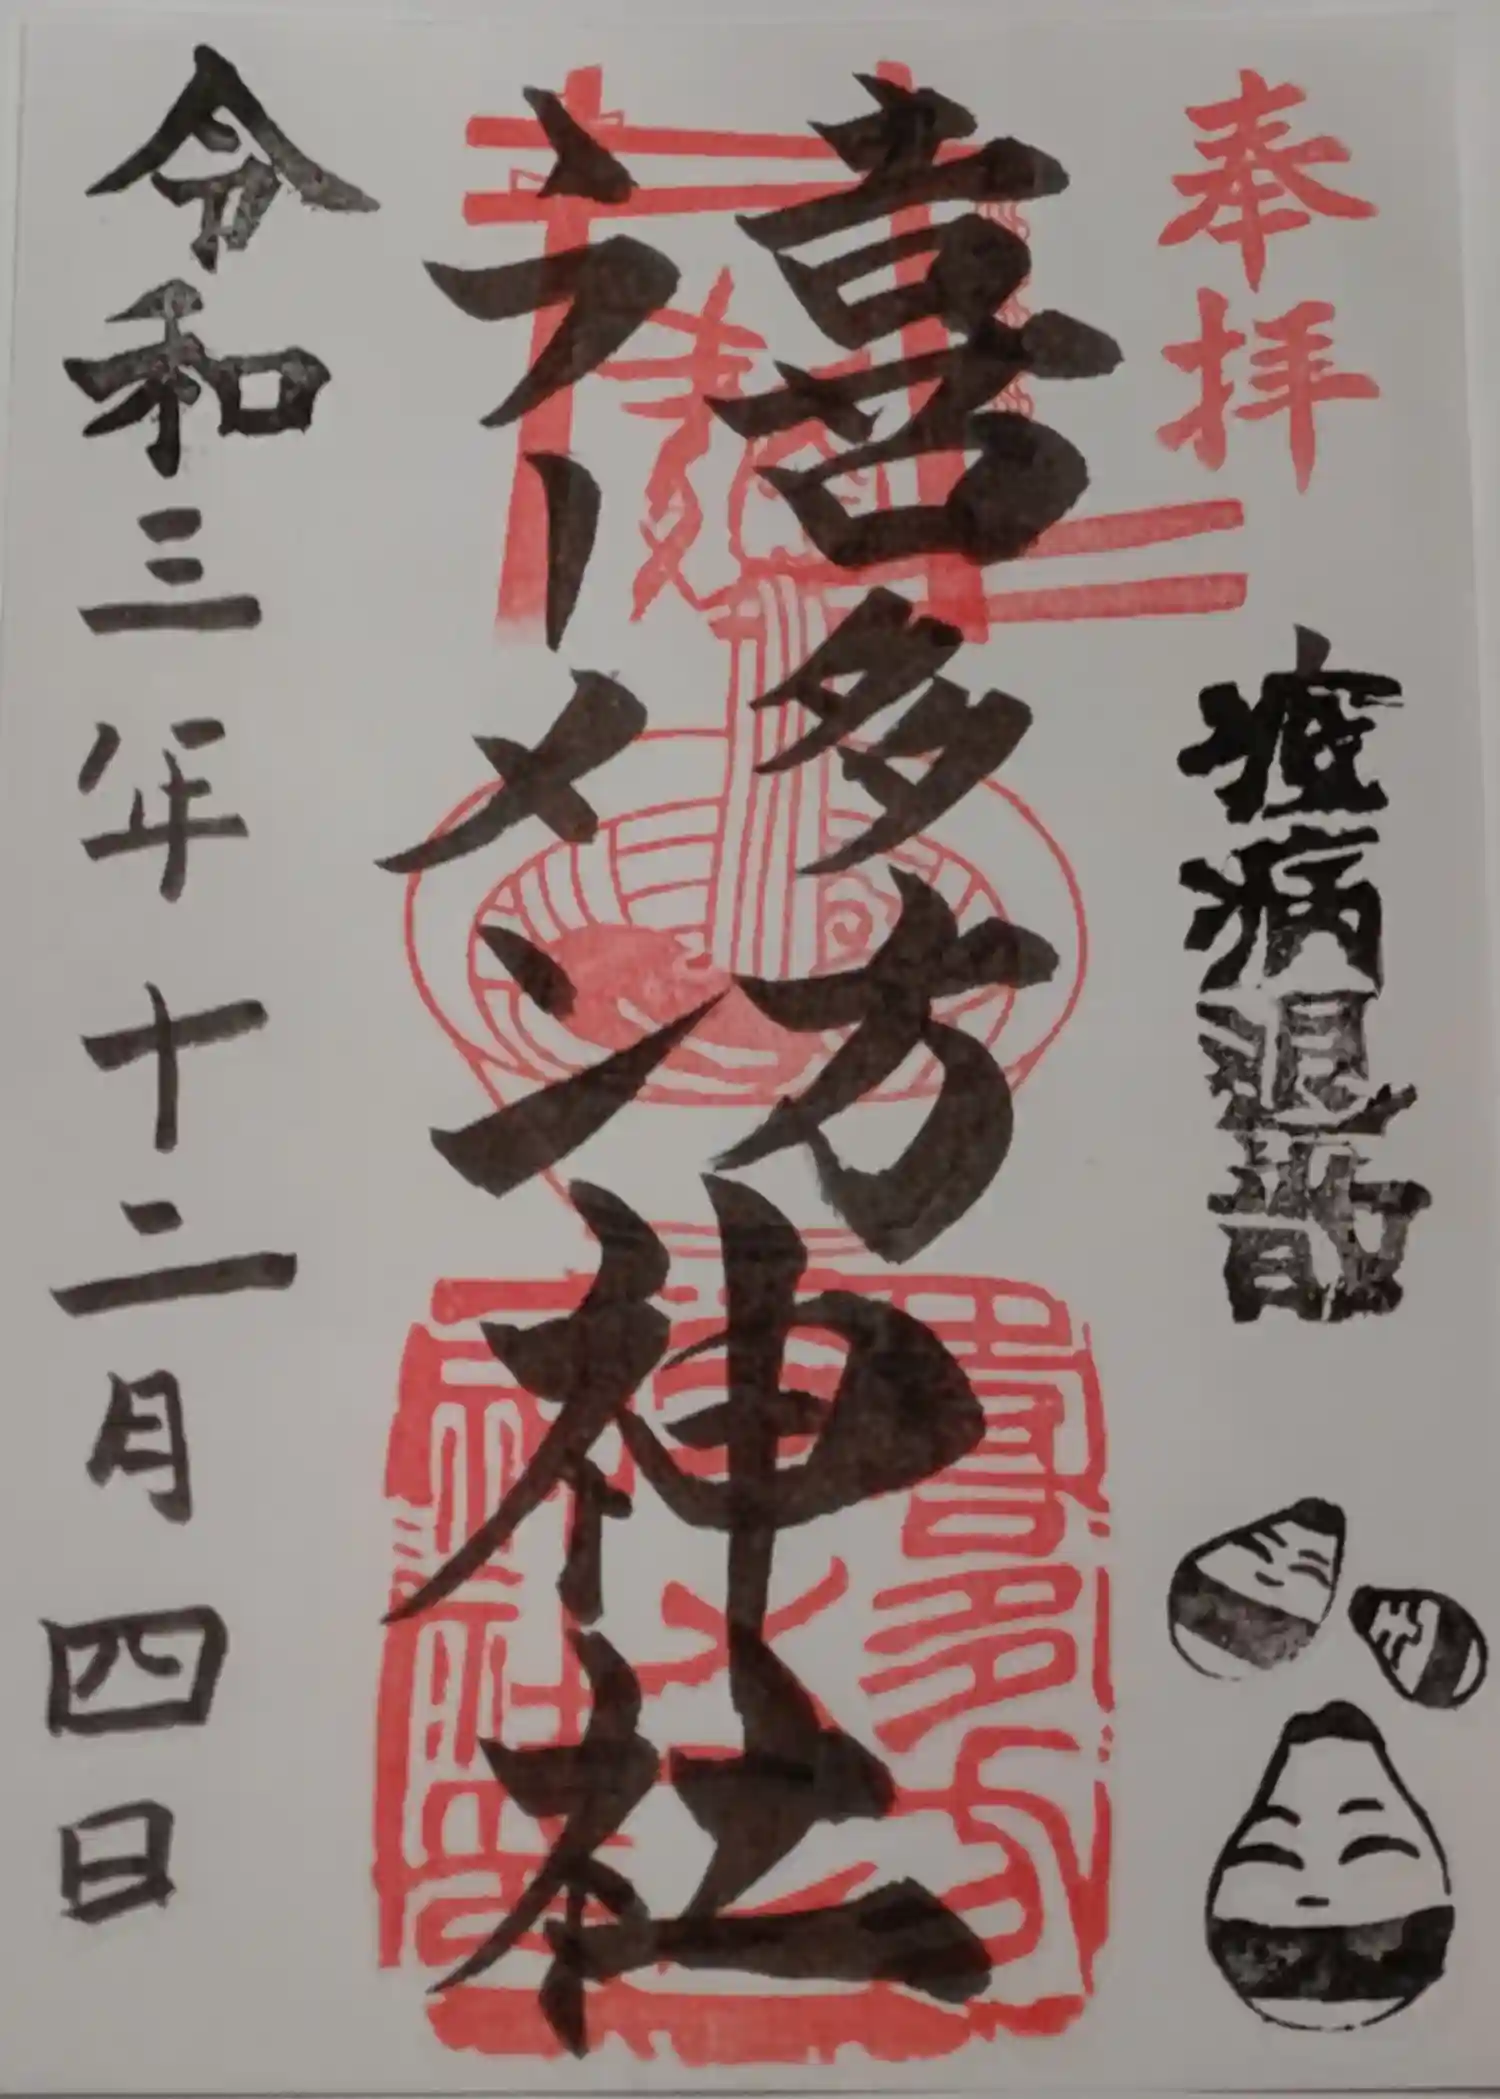 奉拝
疫病退散
喜多方
ラーメン神社
令和三年十二月四日